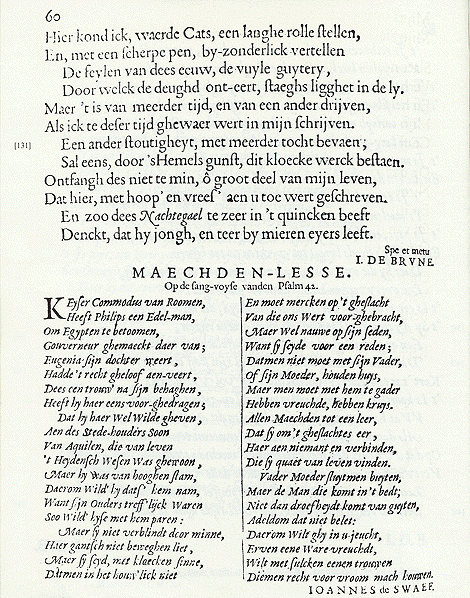 60
Hier kond ick, waerde Cats, een langhe rolle stellen,
En, met een scherpe pen, by-zonderlick vertellen
De feylen van dees eeuw, de vuyle guytery,
Door welck de deughd ont-eert, staeghs ligghet in de ly.
Maer 't is van meerder tijd, en van een ander drijven,
Als ick te deser tijd ghewaer wert in mijn schrijven.
[131]
Een ander stoutigheyt, met meerder tocht bevaen;
Sal eens, door 'sHemels gunst, dit kloecke werck bestaen.
Ontfangh des niet te min, ô groot deel van mijn leven,
Dat hier, met hoop' en vrees' aen u toe wert geschreven.
En zoo dees Nachtegael te zeer in 't quincken beeft
Denckt, dat hy jongh, en teer by mieren eyers leeft.
Spe et metu
I. DE BRVNE
MAECHDEN-LESSE.
Op de sang-voyse vanden Psalm 42.
KEyser Commodus van Roomen,
Heeft Philips een Edel-man,
Om Egypten te betoomen,
Gouverneur ghemaeckt daer van;
Eugenia sijn dochter weert,
Hadde 't recht gheloof aen-veert,
Dees een trouw' na sijn behaghen,
Heeft hy haer eens voor-ghedragen;
Dat hy haer Wel Wilde gheven,
Aen des Stede-houders Soon
Van Aquilen, die van leven
't Heydensch Wesen Was ghewoon,
Maer hy Was van hooghen stam,
Daerom Wild' hy dats' hem nam,
Want sijn Ouders treff'lijck Waren
Soo Wild' hyse met hem paren:
Maer sy niet verblindt door minne,
Haer gantsch niet beweghen liet,
Maer sy seyd, met kloecken sinne,
Datmen in het houw'lick niet
En moet mercken op 't gheslacht
Van die ons Wert voor-ghebracht,
Maer Wel nauwe op sijn seden,
Want sy seyde voor een reden;
Datmen niet moet met sijn Vader,
Of sijn Moeder, houden huys,
Maer men moet met hem te gader
Hebben vreuchde, hebben kruys.
Allen Maechden tot een leer,
Dat sy om 't gheslachtes eer,
Haer aen niemant en verbinden,
Die sy quaet van leven vinden.
Vader Moeder sluytmen buyten,
Maer de Man die komt in 't bedt;
Niet dan droefheydt komt van guyten,
Adeldom dat niet belet:
Daerom Wilt ghy in u jeucht,
Erven eene Ware vreuchdt,
Wilt met sulcken eenen trouwen
Diemen recht voor vroom mach houwen.
IOANNES de SWAEF.